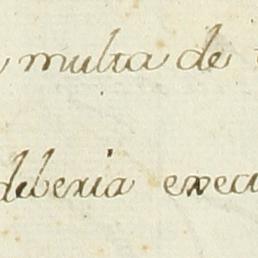 multa de
deberia execu